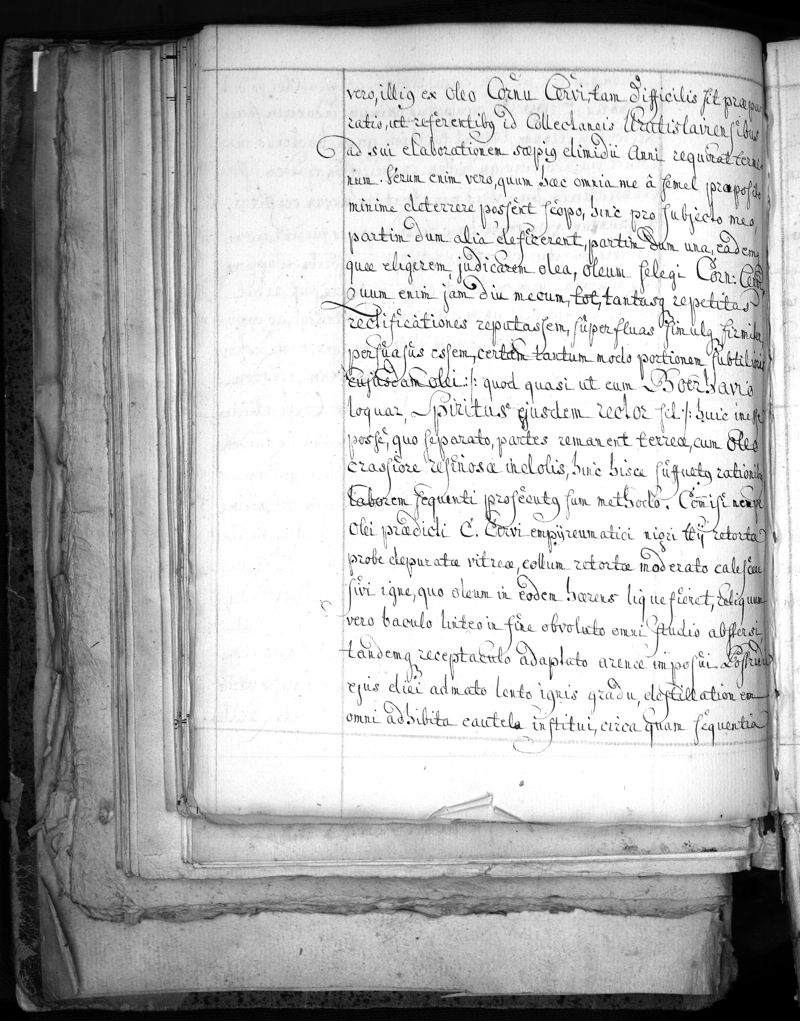 vero, illiq ex Oleo Cornu Cervi, tam difficilis sit præpa
ratio, ut referentibq id Collectaneis Uratislaviensibus
ad sui elaborationem sæpiq dimidii Anni requirat termi
num. Verum enim vero, quum hæc omnia me â semel præposito
minime deterrere possent scopo, hinc pro subjecto meo,
partim dum alia deficerent, partim dum una, eademq
quæ eligerem, judicarem olea, oleum selegi Corn: Cervi
Quum enim jam diu mecum, tot, tantasq repetitas
rectificationes reputassem, superfluas simulq firmiter
persuasus essem, certam tantum modo portionem subtilioris
cujusdam olei :/: quod quasi ut cum Boerhavio
loquar, Spiritus ejusdem rector sit :/: huic inesse
posse, quo separato, partes remanent terreæ, cum Oleo
crassiore resinosæ indolis, hinc hisce suffultq rationibq
laborem sequenti prosecutq sum methodo. Comisi nempe
Olei prædicti C. Cervi empyreumatici nigri retorta
probe depuratæ vitreæ, collum retortæ moderato calefeci
sivi igne, quo oleum in eodem hærens liquefieret, reliquum
vero baculo linteo in fine obvoluto omni studio abstersi,
tandemq receptaculo adaptato arenæ imposui. Postridie
ejus diei admoto lento ignis gradu, destillationem
omni adhibita cautela institui, circa quam sequentia